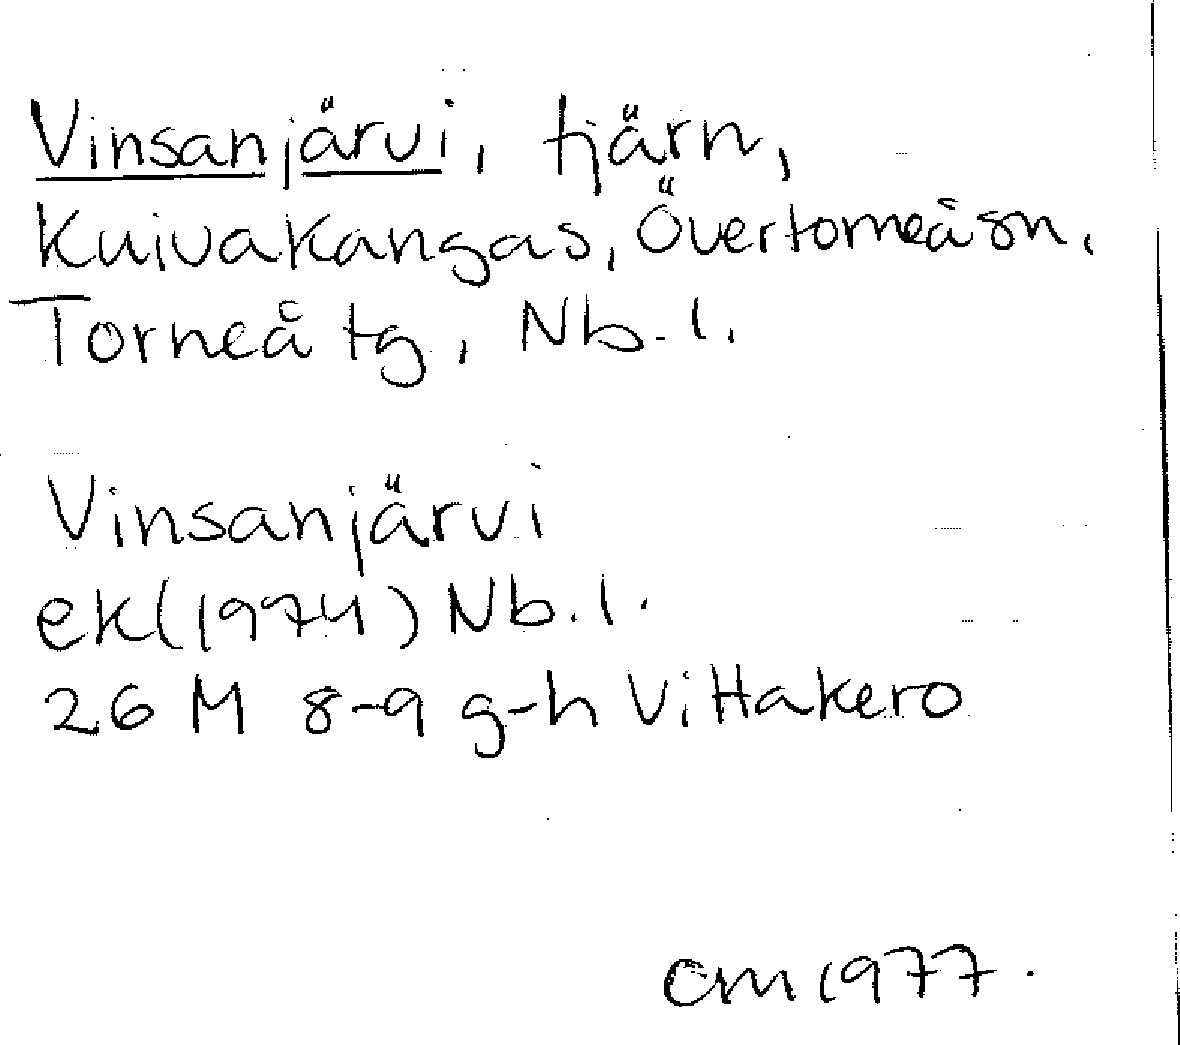 Vinsanjärvi, tjärn,
Kuivakangas, Övertorneå sn,
Torneå tg, Nb.l.
Vinsanjärvi
ek(1974) Nb.l.
26 M 8-9 g-h Vittakero
CM 1977.